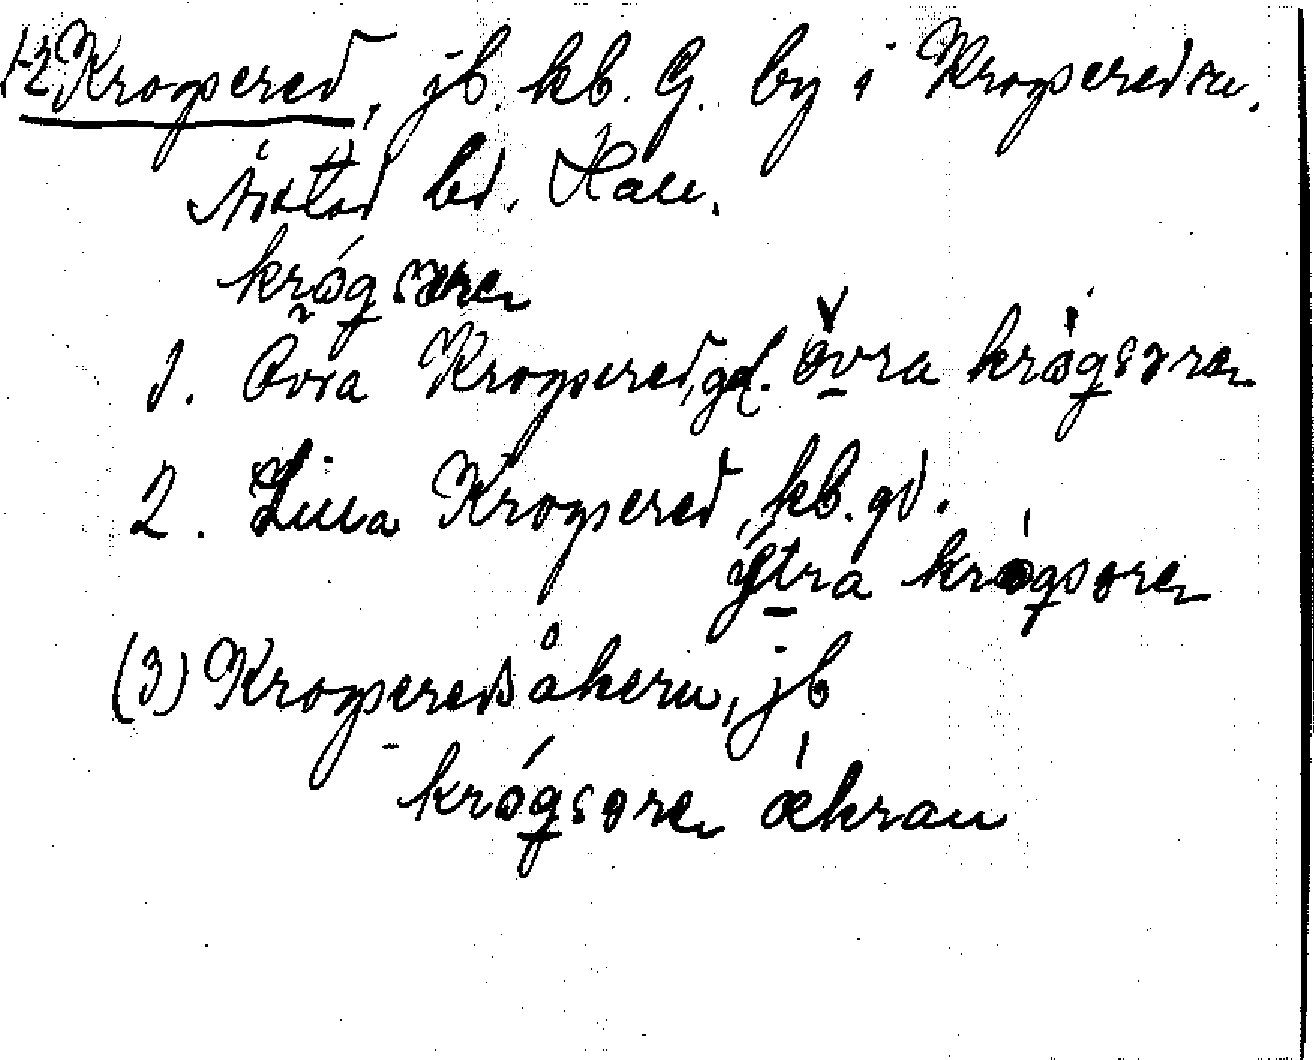 1-2 Krogsered, jb. kb. G. by i Krogsered sn.
Årstad hd. Hall.
krógsæren
1. Övra Krogsered, gd. övra krógsæren
2. Lilla Krogsered, kb. gd.
ýtra krógsæren
(3) Krogseredsåkern, jb
krógsæren åkran